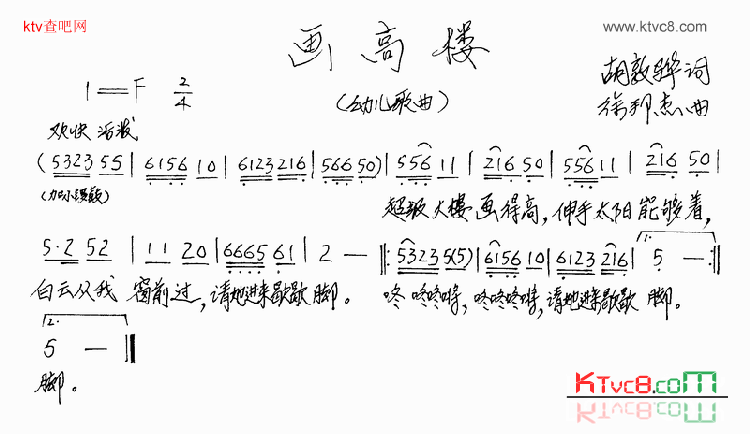 ktv查吧网
www.ktvc8.com
画高楼
1=F 2/4
(幼儿歌曲)
胡敦骅词
徐邦杰曲
欢快 活泼
( 5323 55 | 6156 10 | 6123 216 | 566 50 ) | 556 11 | 216 50 | 556 11 | 216 50 |
(加小漫鼓)
超级大楼画得高,伸手太阳能够着,
5·2 52 | 11 20 | 6665 61 | 2 — ‖: 5323 5(5) | 6156 10 | 6123 216 | 1. 5 — :‖
白云从我窗前过,请她进来歇歇脚。 咚咚咚锵,咚咚咚锵,请她进来歇歇脚。
2.
5 — ‖
脚。
KTVC8.com